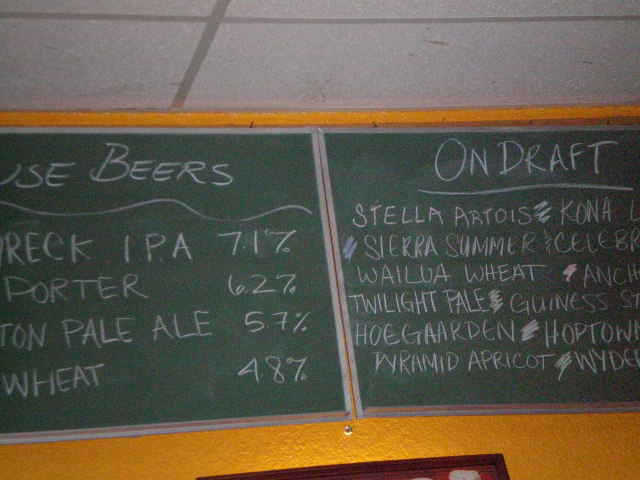 USE BEERS
RECK IPA 7.1%
PORTER 6.2%
TON PALE ALE 5.7%
WHEAT 4.8%
ON DRAFT
STELLA ARTOIS KONA L
SIERRA SUMMER & CELEBR
WAILUA WHEAT ANCH
TWILIGHT PALE GUINESS S
HOEGAARDEN HOPTOW
PYRAMID APRICOT WYDE